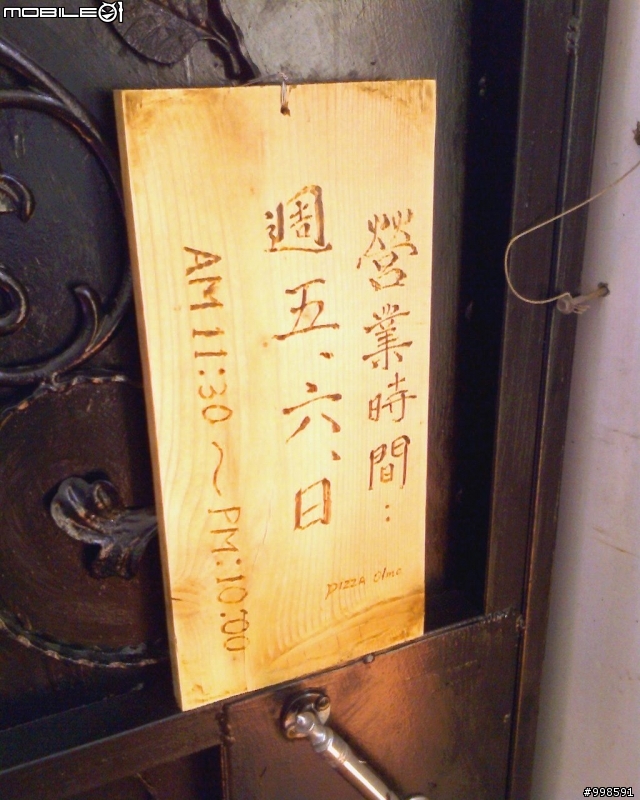 MOBILE01
營業時間：
週五、六、日
AM 11:30 ~ PM:10:00
PIZZA Olmo
#998591